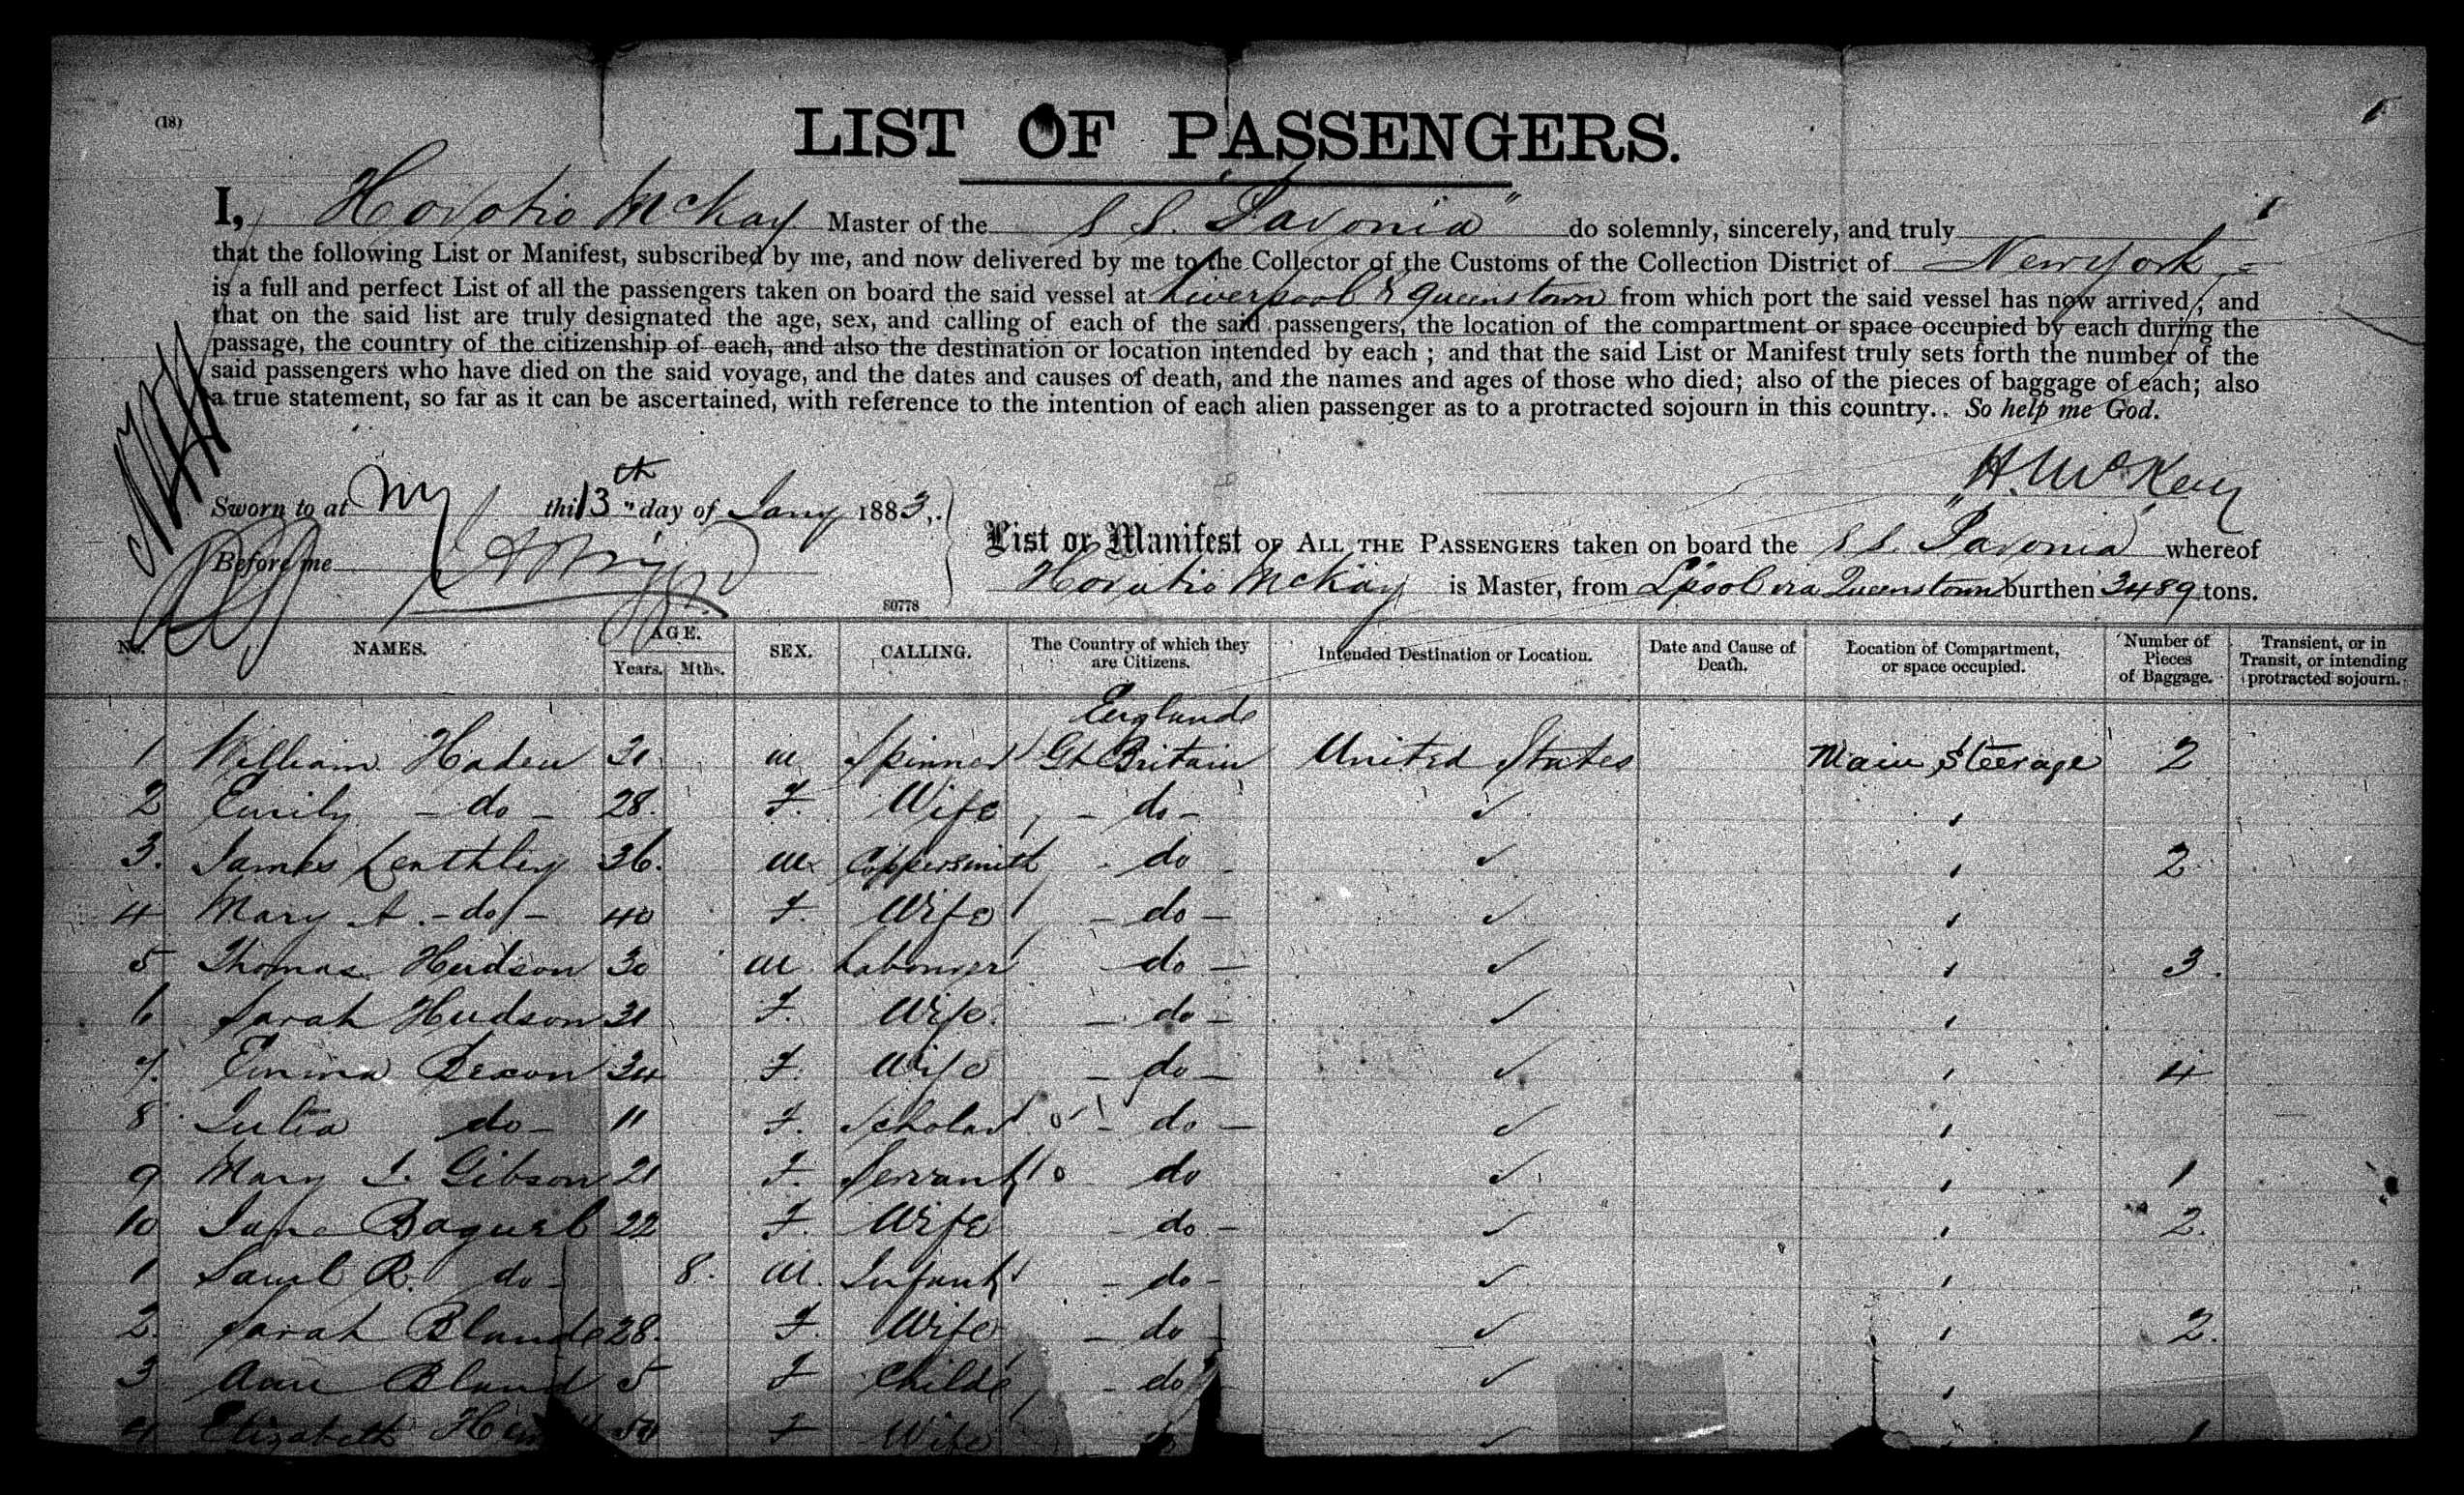 (18)
LIST OF PASSENGERS.
I, Horatio McKay Master of the S S. "Pavonia" do solemnly, sincerely, and truly
that the following List or Manifest, subscribed by me, and now delivered by me to the Collector of the Customs of the Collection District of New York
is a full and perfect List of all the passengers taken on board the said vessel at Liverpool & Queenstown from which port the said vessel has now arrived; and
that on the said list are truly designated the age, sex, and calling of each of the said passengers, the location of the compartment or space occupied by each during the
passage, the country of the citizenship of each, and also the destination or location intended by each; and that the said List or Manifest truly sets forth the number of the
said passengers who have died on the said voyage, and the dates and causes of death, and the names and ages of those who died; also of the pieces of baggage of each; also
a true statement, so far as it can be ascertained, with reference to the intention of each alien passenger as to a protracted sojourn in this country.. So help me God.
H. McKay
Sworn to at NY this 13th day of Jany 1883.
Before me
List or Manifest OF ALL THE PASSENGERS taken on board the S S. "Pavonia" whereof
Horatio McKay is Master, from L'pool via Queenstown burthen 3489 tons.
80778
No. NAMES. AGE. Years. Mths. SEX. CALLING. The Country of which they are Citizens. Intended Destination or Location. Date and Cause of Death. Location of Compartment, or space occupied. Number of Pieces of Baggage. Transient, or in Transit, or intending protracted sojourn.
England
1 William Haden 21 M Spinner Gt Britain United States Main Steerage 2
2 Emily - do - 28. F. Wife - do -
3. James 36. M Coppersmith - do 2
4 Mary A. - do - 40 F. Wife - do -
5 Thomas Hudson 30 M Labourer - do - 3.
6 Sarah Hudson 31 F. Wife - do -
7. Emma Bexon 34 F. Wife - do - 4
8 do - 11 F. Scholar - do -
9 Mary J. Gibson 21 F. Servant do 1
10 Jane 22 F. Wife - do - 2.
1 Saml R. do - 8. M. Infant - do -
2. Sarah Bland 28. F. Wife - do - 2.
3 Ann Bland 5 F Child - do
4 Elizabeth F Wife do 1